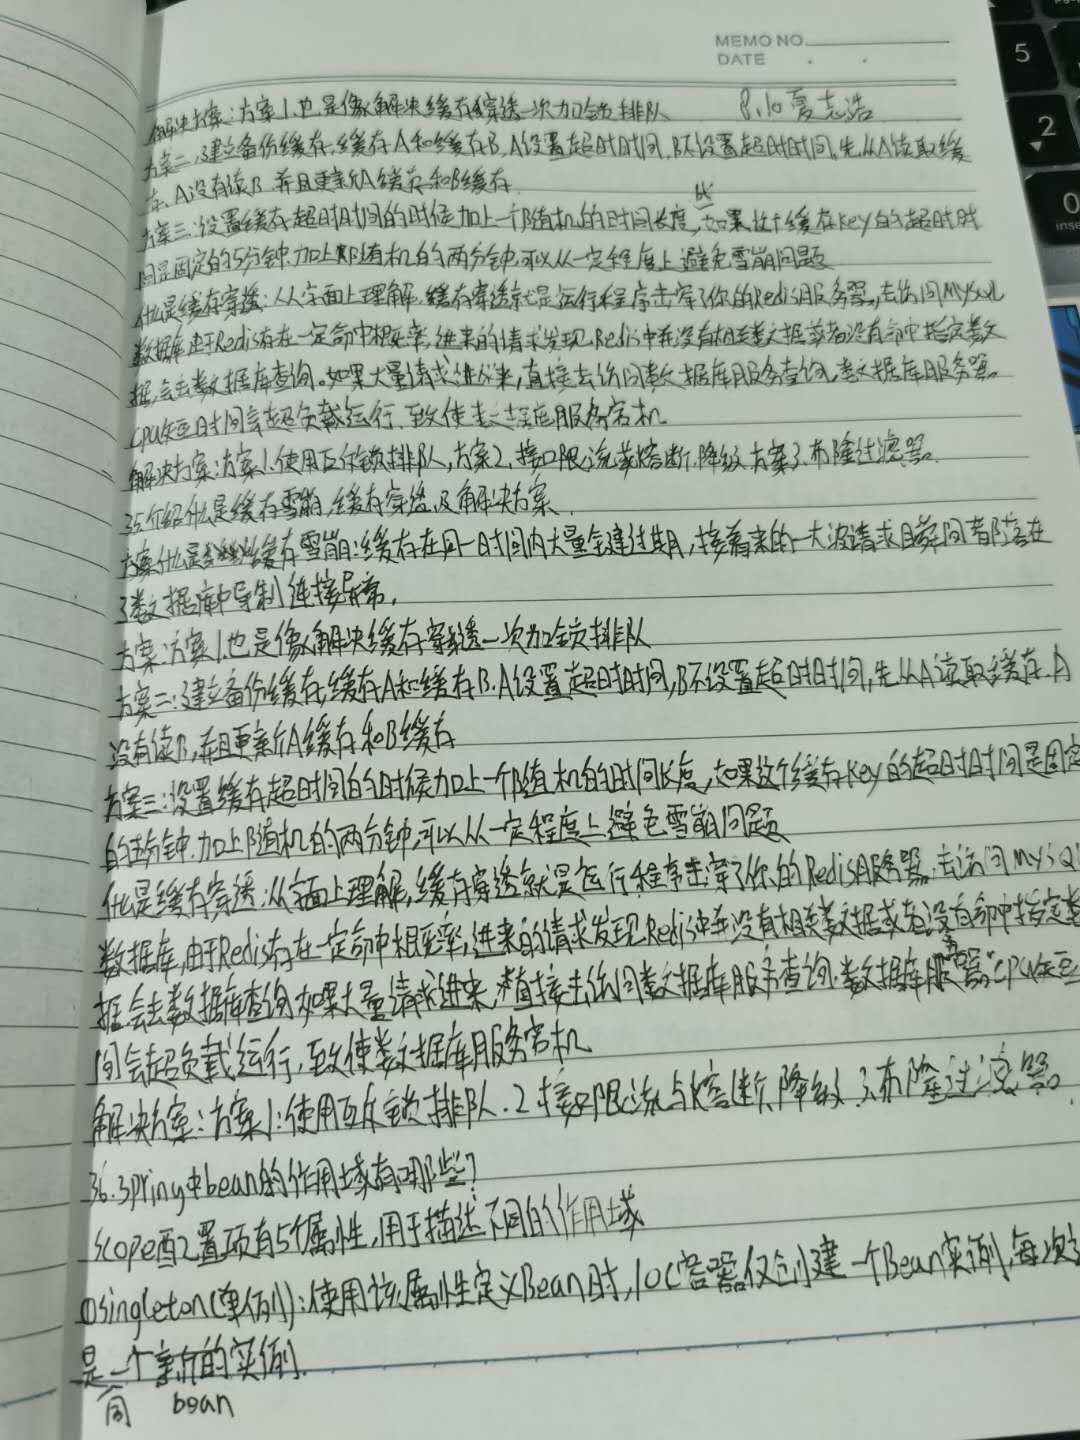 MEMO NO
DATE
8.10 夏志浩
解决方案:方案1.也是像解决缓存穿透一次加锁排队
方案二,建立备份缓存,缓存A和缓存B,A设置超时时间,B不设置超时时间,先从A读取缓
存,A没有读B,并且更新A缓存和B缓存
方案三:设置缓存超时时间的时候加上一个随机的时间长度,如果这个缓存key的超时时
间是固定的5分钟,加上随机的两分钟,可以从一定程度上避免雪崩问题
什么是缓存穿透:从字面上理解,缓存穿透就是运行程序击穿了你的Redis服务器,去访问MySQL
数据库,由于Redis存在一定命中概率,进来的请求发现Redis中并没有相关数据或者没有命中指定数
据,会去数据库查询。如果大量请求进来,直接去访问数据库服务查询,数据库服务器
CPU短时间会超负载运行,致使数据库服务宕机
解决方案:方案1.使用互斥锁排队,方案2,接口限流与熔断,降级,方案3.布隆过滤器
35介绍什么是缓存雪崩,缓存穿透,及解决方案
什么是缓存雪崩:缓存在同一时间内大量键过期,接着来的一大波请求瞬间都落在
了数据库中导制连接异常,
方案:方案1.也是像解决缓存穿透一次加锁排队
方案二:建立备份缓存,缓存A和缓存B.A设置超时时间,B不设置超时时间,先从A读取缓存.A
没有读B,并且更新A缓存和B缓存
方案三:设置缓存超时间的的时候加上一个随机的时间长度,如果这个缓存key的超时时间是固定
的5分钟.加上随机的两分钟,可以从一定程度上避免雪崩问题
什么是缓存穿透:从字面上理解,缓存穿透就是运行程序击穿了你的Redis服务器.去访问MySQL
数据库,由于Redis存在一定命中概率,进来的请求发现Redis中并没有相关数据或者没有命中指定数
据,会去数据库查询,如果大量请求进来,直接去访问数据库服务查询.数据库服务器CPU短
间会超负载运行,致使数据库服务宕机
解决方案:方案1:使用互斥锁排队.2.接口限流与熔断,降级.3.布隆过滤器
36.Spring中bean的作用域有哪些?
Scope配置项有5个属性,用于描述不同的作用域
①singleton(单例):使用该属性定义Bean时,IOC容器仅创建一个Bean实例,每次
是一个新的实例.
同 bean
5
2
0